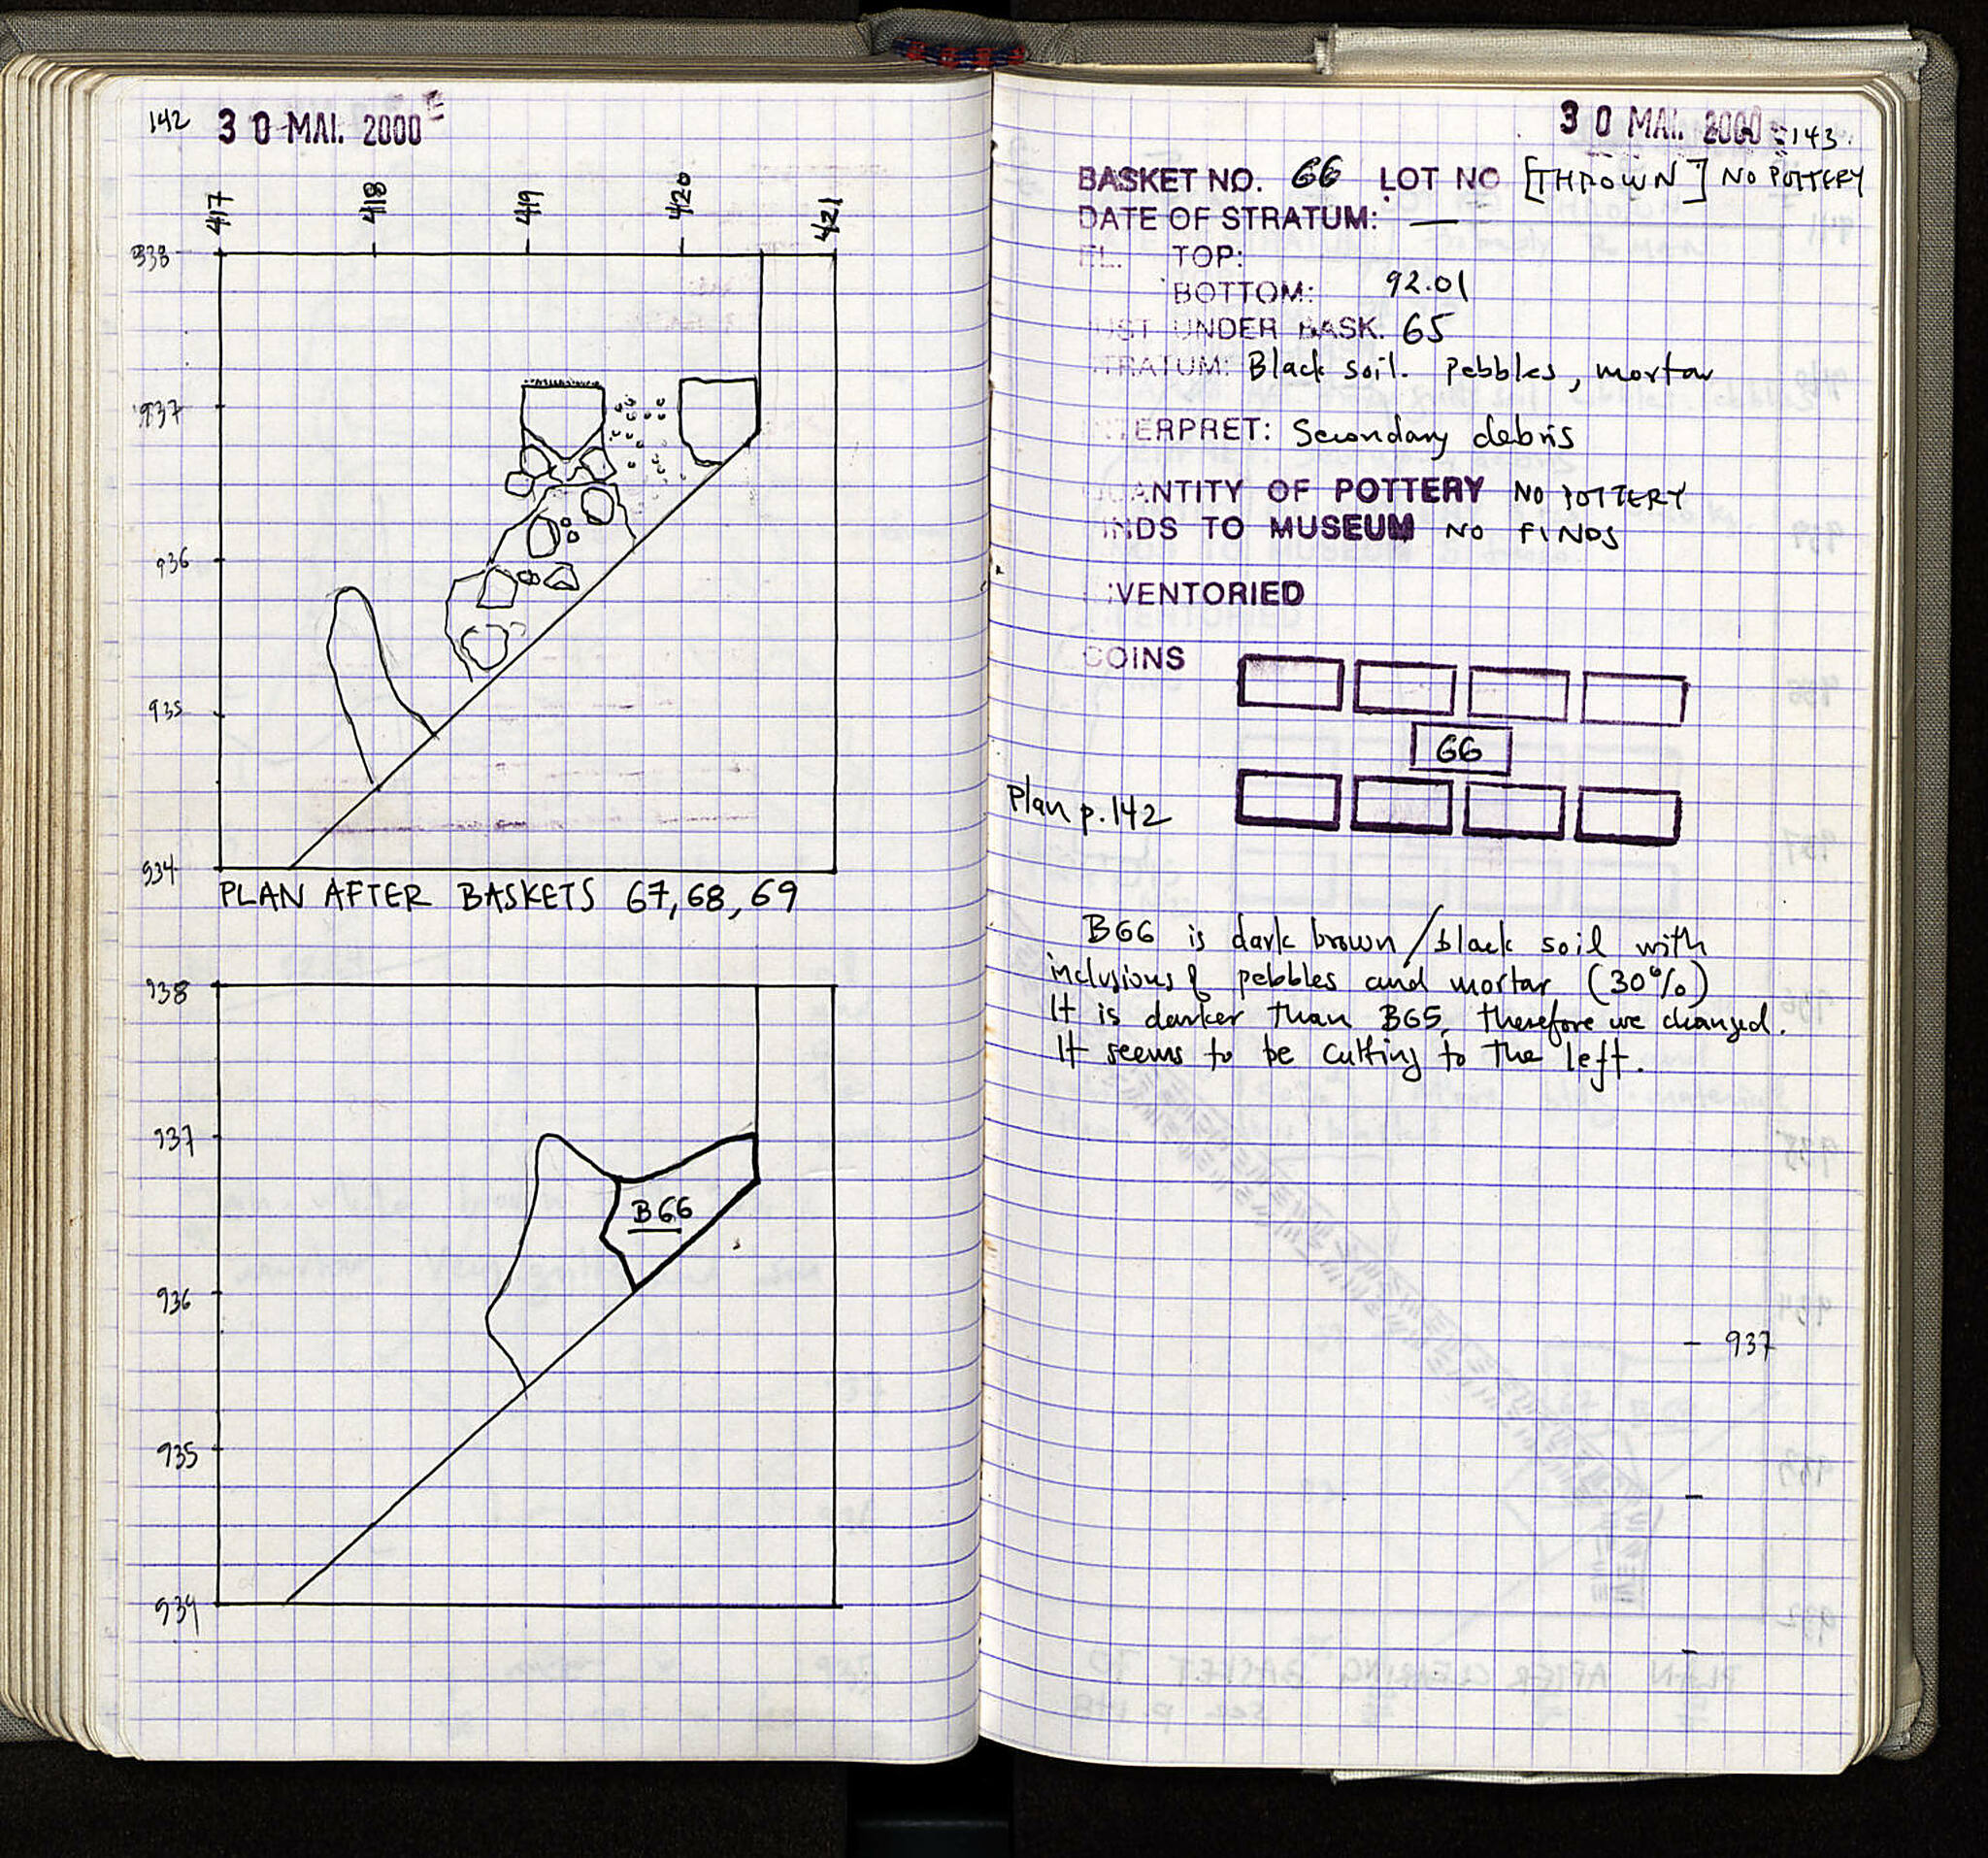 142 30 MAI. 2000
417 418 419 420 421
938
937
936
935
934
PLAN AFTER BASKETS 67, 68, 69
938
937
B66
936
935
934
30 MAI. 2000 143.
BASKET NO. 66 LOT NO [THROWN] NO POTTERY
DATE OF STRATUM: —
EL. TOP:
BOTTOM: 92.01
UST UNDER BASK. 65
TRATUM: Black soil. Pebbles, mortar
NTERPRET: Secondary debris
UANTITY OF POTTERY NO POTTERY
INDS TO MUSEUM NO FINDS
VENTORIED
COINS
66
Plan p. 142
B66 is dark brown/black soil with
inclusions of pebbles and mortar (30%)
It is darker than B65, therefore we changed.
It seems to be cutting to the left.
- 937